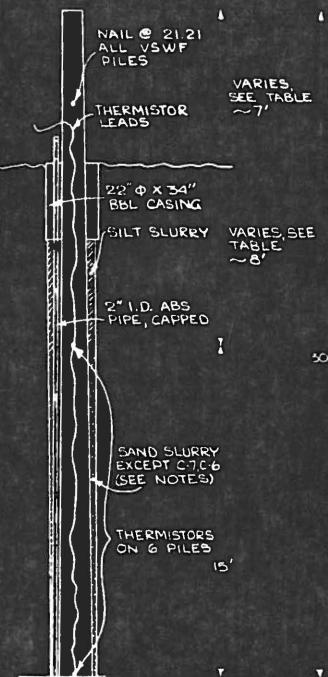 NAIL @ 21.21
ALL VSWF
PILES
VARIES,
SEE TABLE
~7'
THERMISTOR
LEADS
22" Φ X 34"
BBL CASING
SILT SLURRY
VARIES, SEE
TABLE
~8'
2" I.D. ABS
PIPE, CAPPED
30
SAND SLURRY
EXCEPT C-7, C-6
(SEE NOTES)
THERMISTORS
ON 6 PILES
15'